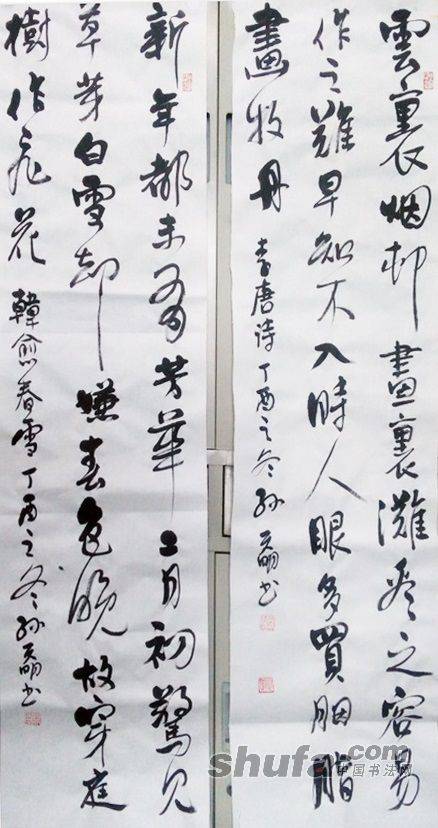 雲裏烟邨畫裏灘看之容易
作之難早知不入時人眼多買胭脂
畫牡丹 李唐诗丁酉之冬孙书
新年都未有芳華二月初驚見
草芽白雪却嫌春色晚故穿庭
樹作飛花 韓愈春雪丁酉之冬孙书
shufa.com
中国书法网